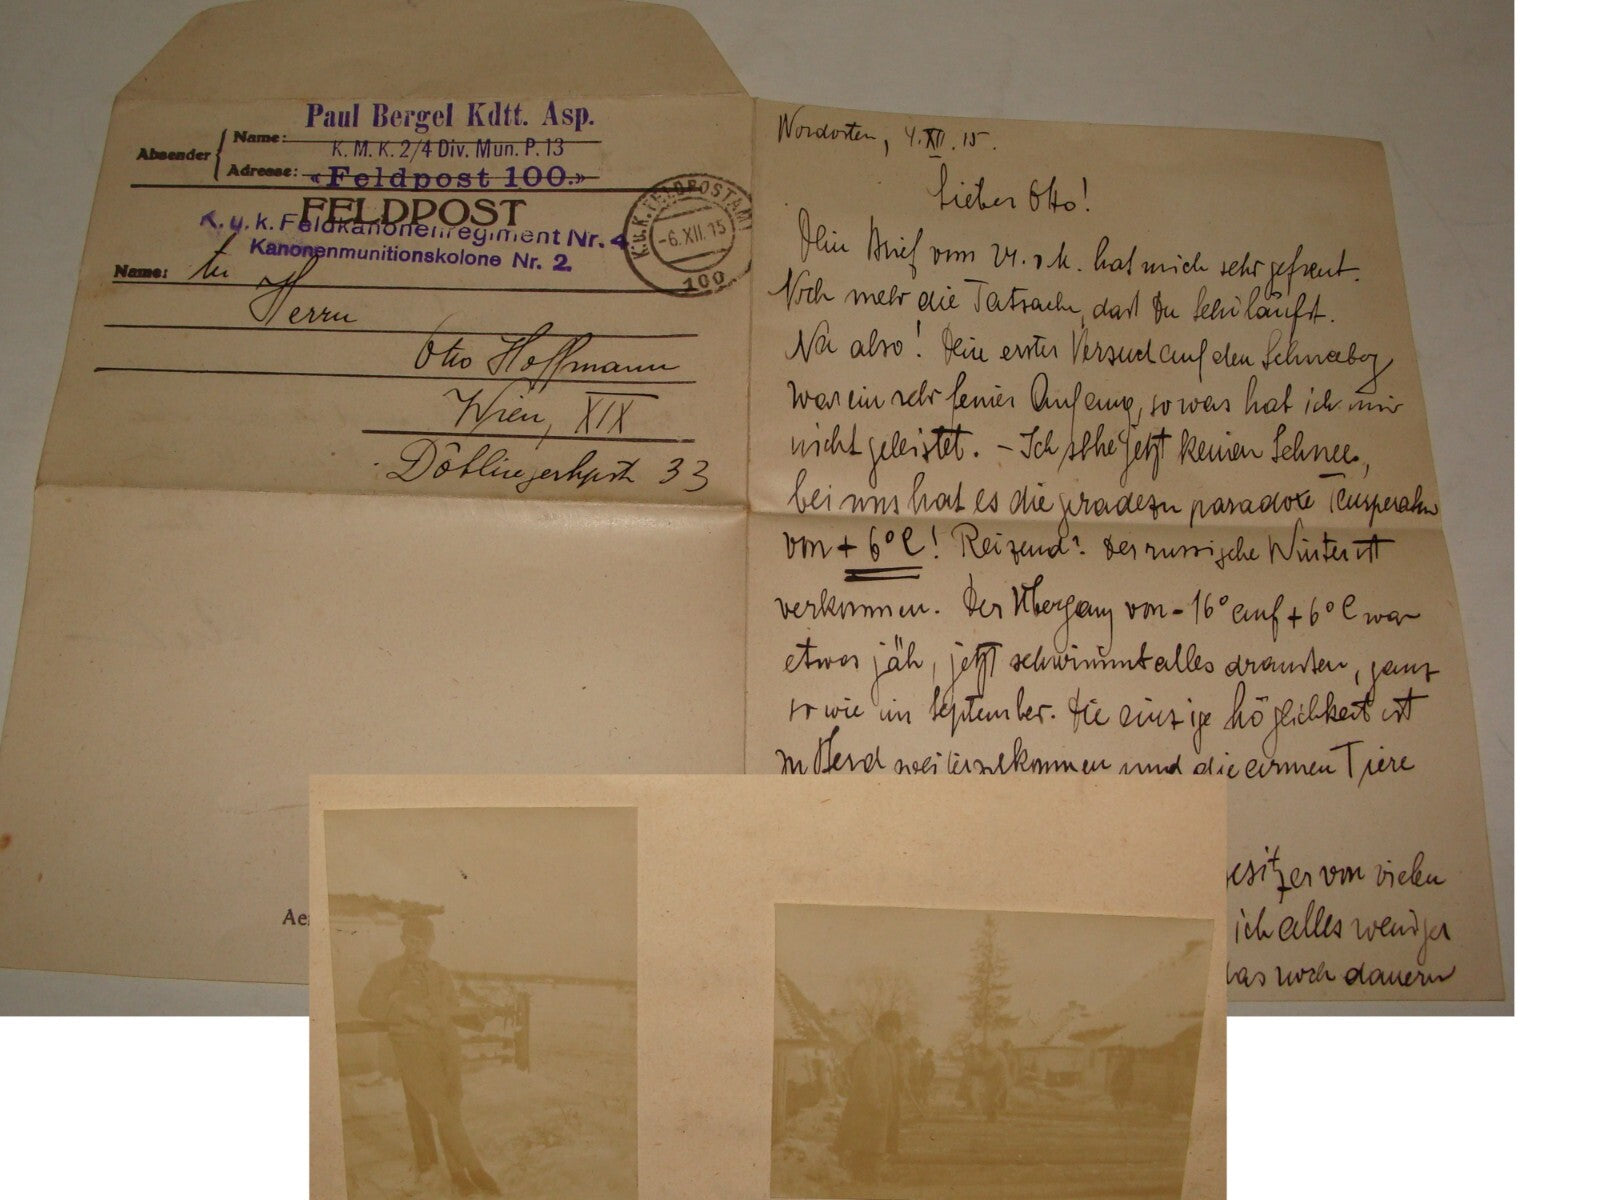 Paul Bergel Kdtt. Asp.
Absender
Name:
K.M.K. 2/4 Div. Mun. P. 13
Adresse:
«Feldpost 100.»
FELDPOST
K.u.k. Feldkanonenregiment Nr. 4
Kanonenmunitionskolone Nr. 2.
K.u.K. FELDPOSTAMT
-6.XII.15
100
Name: An
Herrn
Otto Hoffmann
Wien, XIX
Döblingerhptst 33
Ae
Nordosten, 4.XII.15.
Lieber Otto!
Dein Brief vom 24. v. M. hat mich sehr gefreut.
Noch mehr die Tatsache, dass Du Schi läufst.
Na also! Dein erster Versuch auf den Schneeberg
war ein sehr feiner Anfang, so was hab ich mir
nicht geleistet. – Ich sehe jetzt keinen Schnee,
bei uns hat es die geradezu paradoxe Temperatur
von + 6° C! Reizend? Der russische Winter ist
verkommen. Der Übergang von - 16° auf + 6° C war
etwas jäh, jetzt schwimmt alles draussen, ganz
so wie im September. Die einzige Möglichkeit ist
zu Pferd weiterzukommen und die armen Tiere
esitzer von vielen
ich alles weniger
das noch dauern